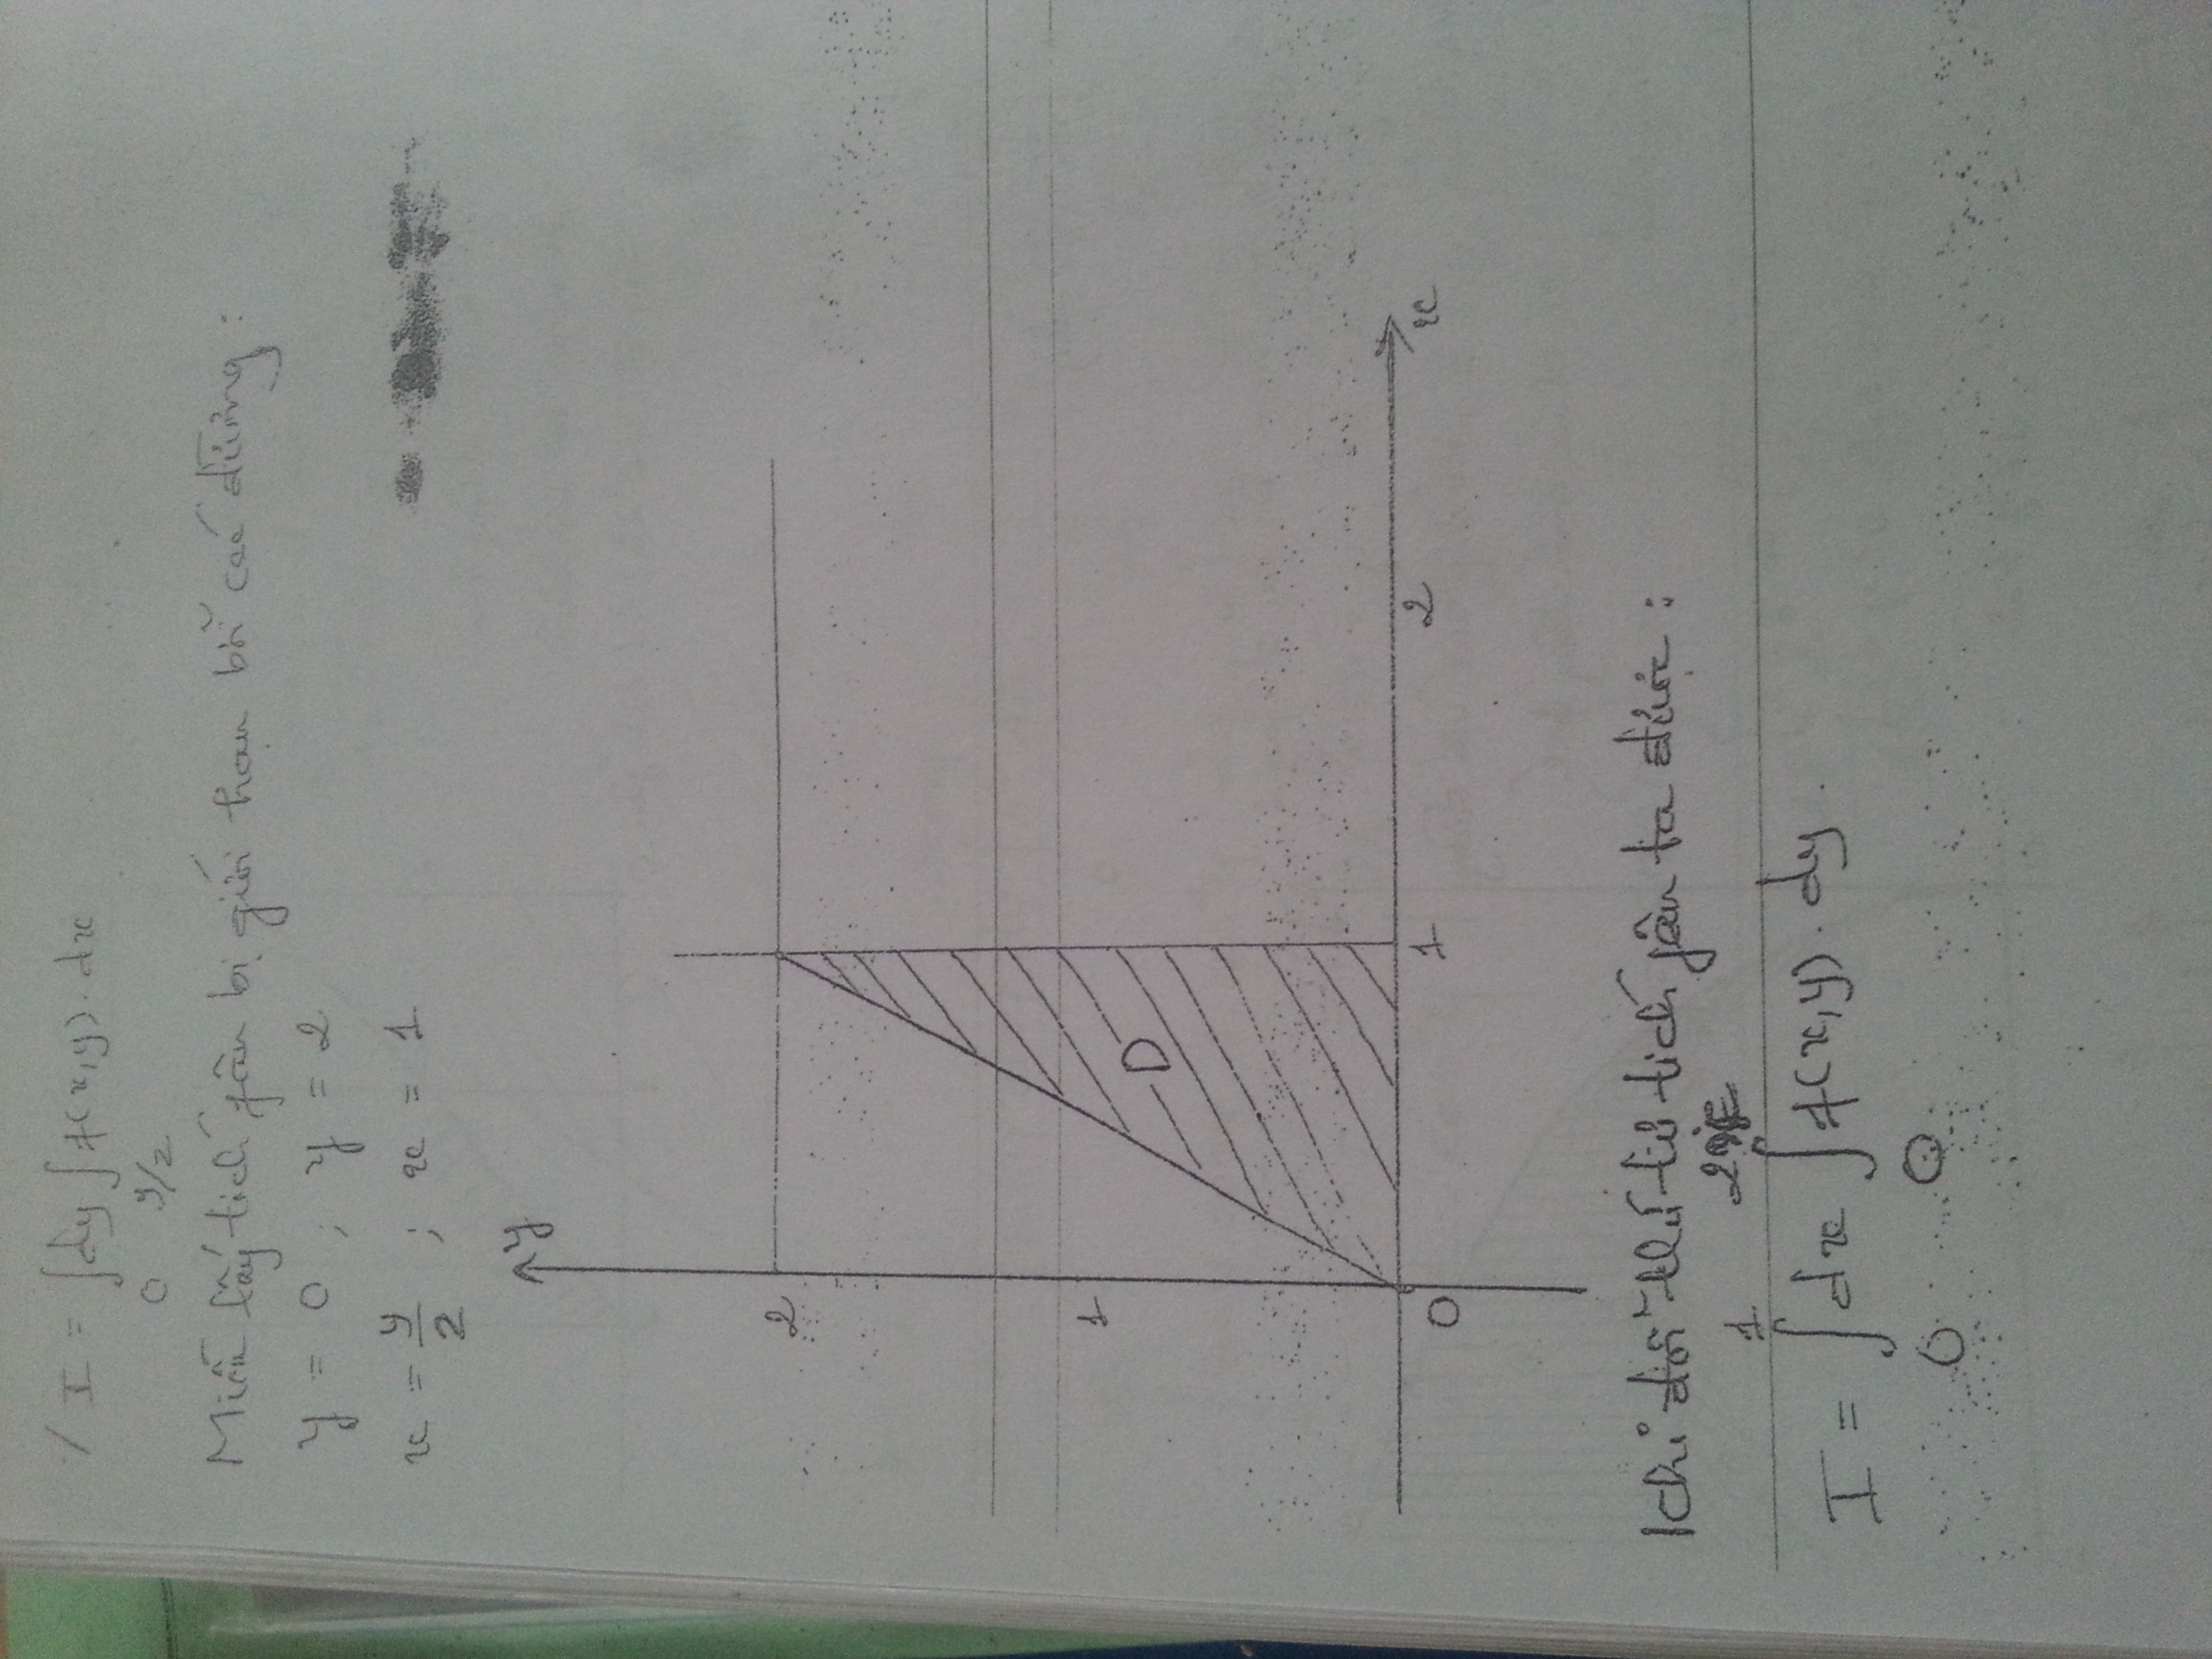 / I = ∫dy ∫f(x,y). dx
0 y/2
Miền lấy tích fân bị giới hạn bởi các đường :
y = 0 ; y = 2
x = y/2 ; x = 1
y
2
1
D
0 1 2 x
Khi đổi thứ tự tích fân ta được :
1
I = ∫dx ∫f(x,y). dy .
0 0